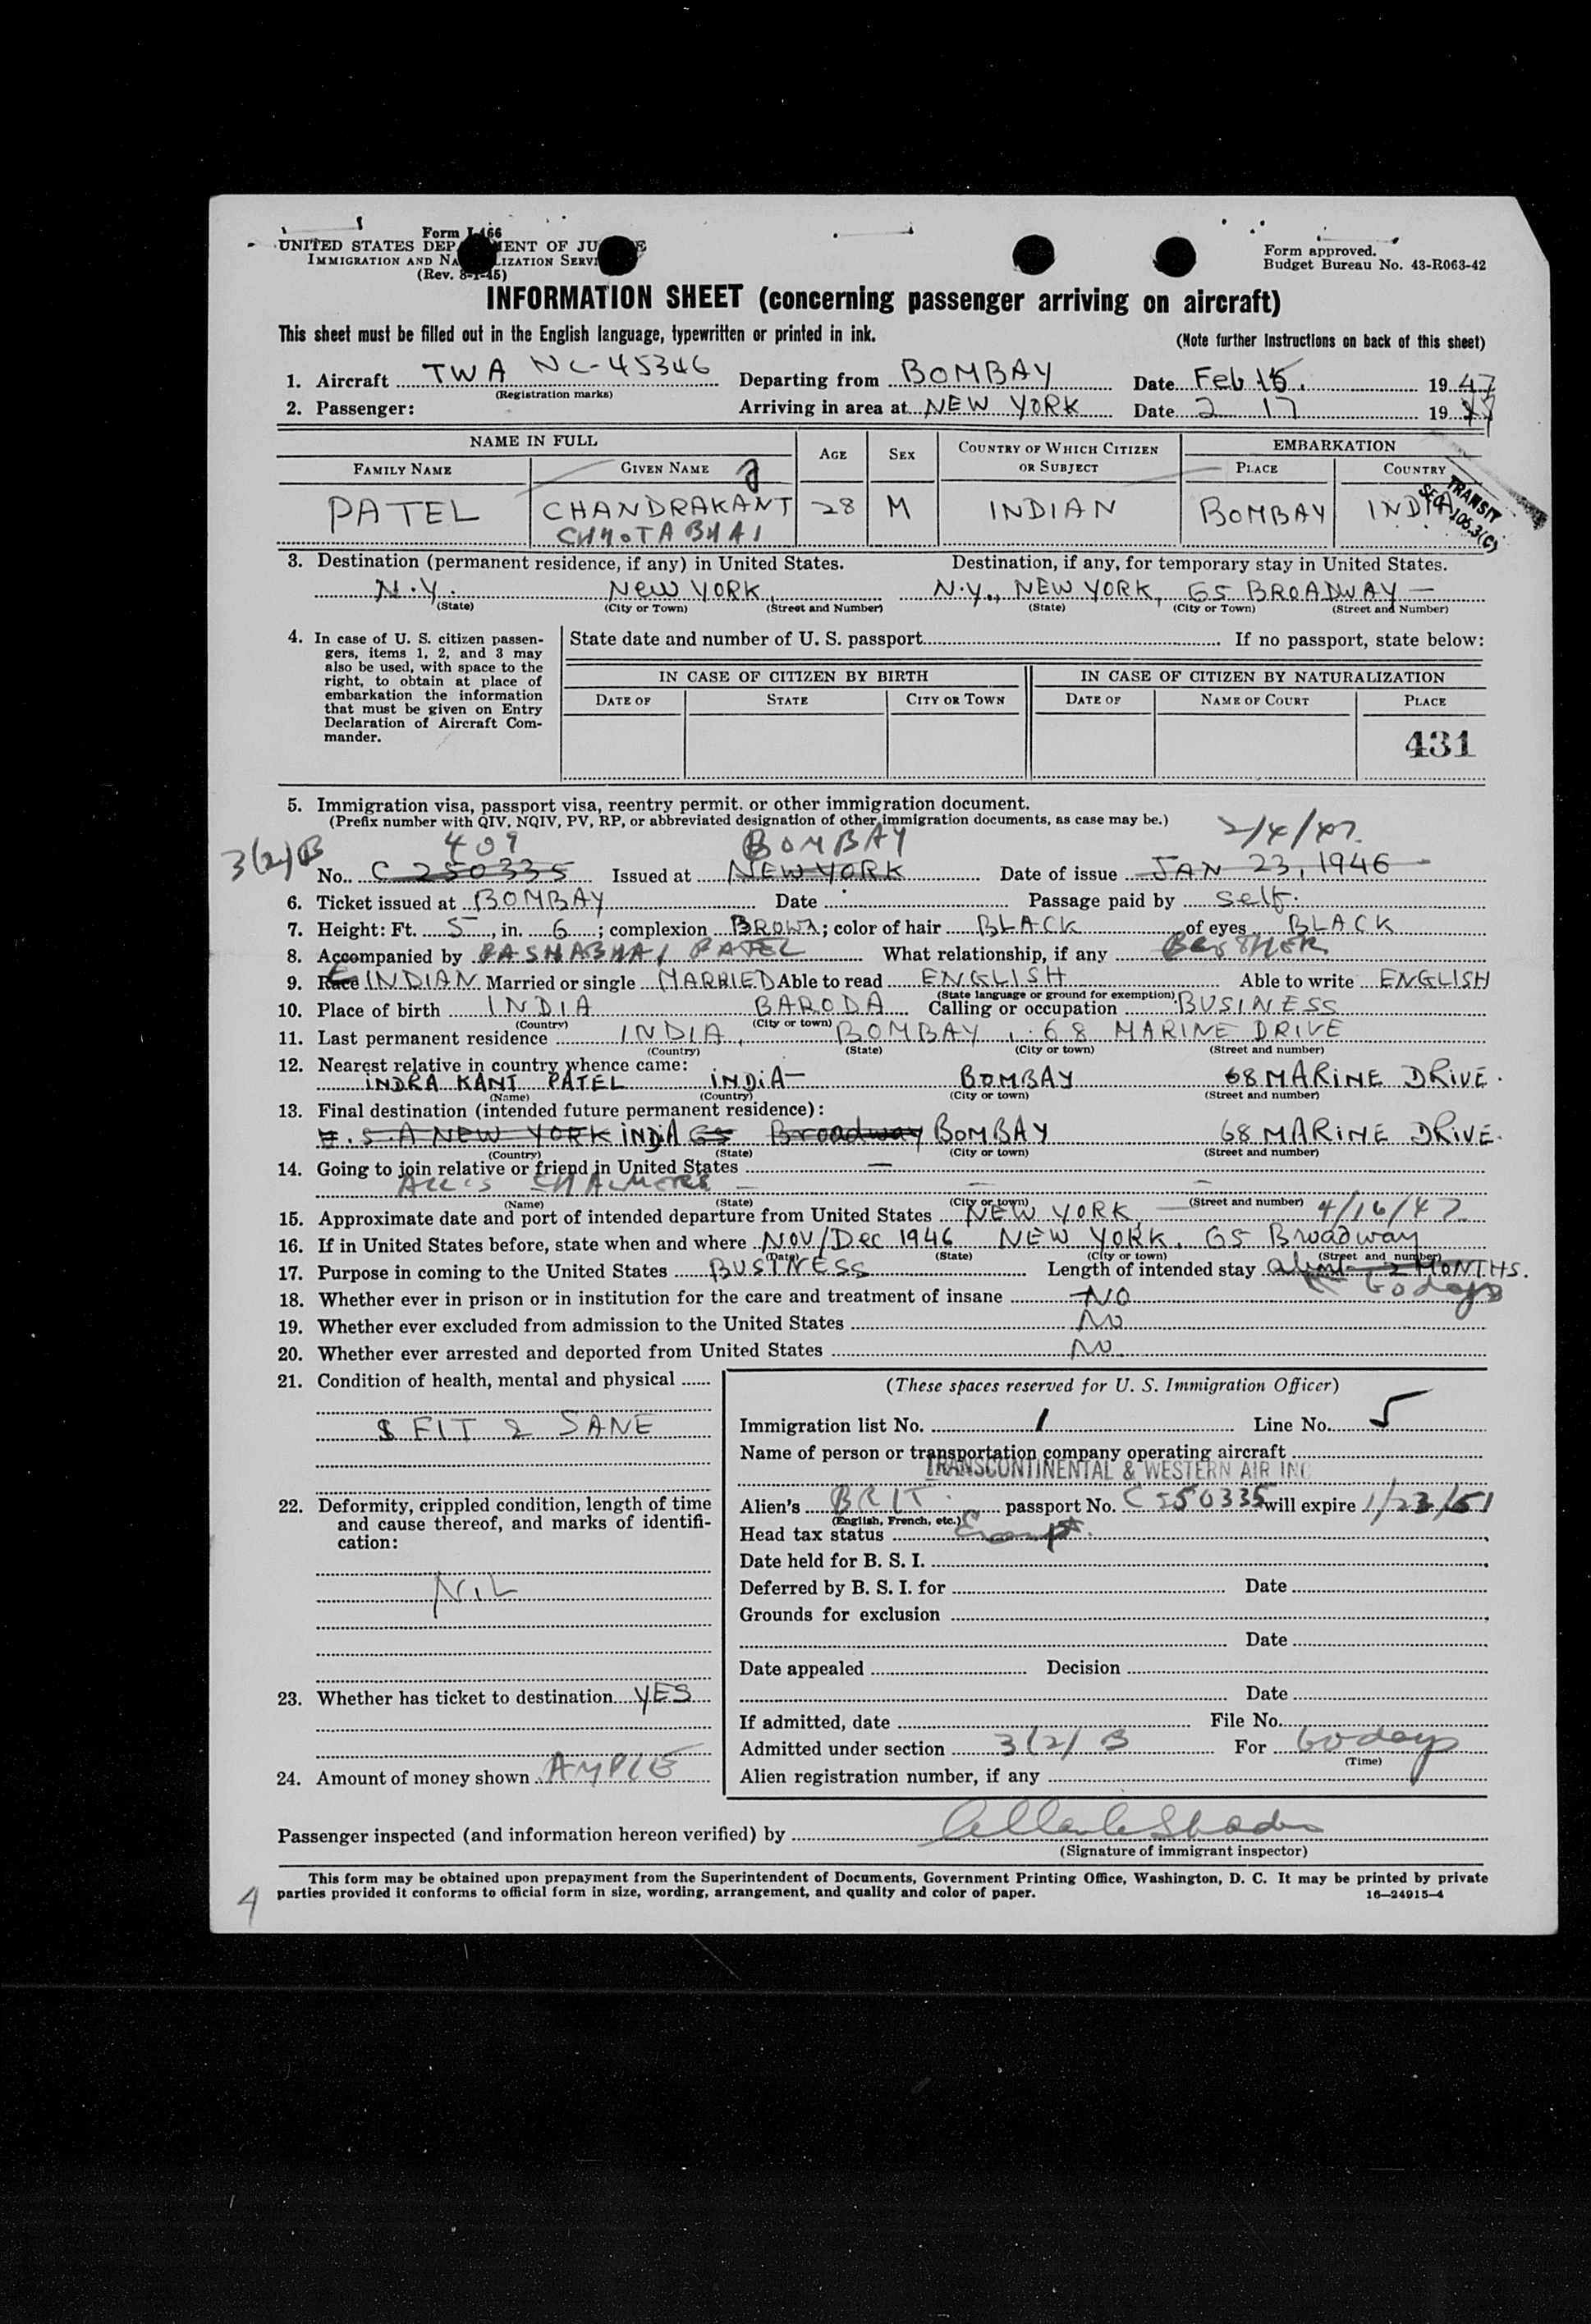 Form I-466
UNITED STATES DEPARTMENT OF JUSTICE
IMMIGRATION AND NATURALIZATION SERVICE
(Rev. 8-1-45)
Form approved.
Budget Bureau No. 43-R063-42
INFORMATION SHEET (concerning passenger arriving on aircraft)
This sheet must be filled out in the English language, typewritten or printed in ink. (Note further instructions on back of this sheet)
1. Aircraft TWA NC-45346 Departing from BOMBAY Date Feb 15. 1947
(Registration marks)
2. Passenger: Arriving in area at NEW YORK Date 2 17 19
NAME IN FULL AGE SEX COUNTRY OF WHICH CITIZEN OR SUBJECT EMBARKATION
FAMILY NAME GIVEN NAME PLACE COUNTRY
PATEL CHANDRAKANT 28 M INDIAN BOMBAY INDIA
CHHOTABHAI
TRANSIT
SEC. 106.3(C)
3. Destination (permanent residence, if any) in United States. Destination, if any, for temporary stay in United States.
N.Y. New YORK, N.Y., NEW YORK, 65 BROADWAY —
(State) (City or Town) (Street and Number) (State) (City or Town) (Street and Number)
4. In case of U. S. citizen passen-
gers, items 1, 2, and 3 may
also be used, with space to the
right, to obtain at place of
embarkation the information
that must be given on Entry
Declaration of Aircraft Com-
mander.
State date and number of U. S. passport If no passport, state below:
IN CASE OF CITIZEN BY BIRTH IN CASE OF CITIZEN BY NATURALIZATION
DATE OF STATE CITY OR TOWN DATE OF NAME OF COURT PLACE
431
5. Immigration visa, passport visa, reentry permit. or other immigration document.
(Prefix number with QIV, NQIV, PV, RP, or abbreviated designation of other immigration documents, as case may be.)
3(2)B 409 BOMBAY 2/4/47.
No. C 250335 Issued at NEW YORK Date of issue JAN 23, 1946
6. Ticket issued at BOMBAY Date Passage paid by self.
7. Height: Ft. 5, in. 6; complexion BROWN; color of hair BLACK of eyes BLACK
8. Accompanied by PASHABHAI PATEL What relationship, if any BROTHER
9. Race INDIAN Married or single MARRIED Able to read ENGLISH Able to write ENGLISH
(State language or ground for exemption)
10. Place of birth INDIA BARODA Calling or occupation BUSINESS
(Country) (City or town)
11. Last permanent residence INDIA, BOMBAY, 68 MARINE DRIVE
(Country) (State) (City or town) (Street and number)
12. Nearest relative in country whence came:
INDRA KANT PATEL INDIA— BOMBAY 68 MARINE DRIVE.
(Name) (Country) (City or town) (Street and number)
13. Final destination (intended future permanent residence):
U.S.A NEW YORK INDIA 65 Broadway BOMBAY 68 MARINE DRIVE.
(Country) (State) (City or town) (Street and number)
14. Going to join relative or friend in United States —
ALLIS CHALMERS — — —
(Name) (State) (City or town) (Street and number)
15. Approximate date and port of intended departure from United States NEW YORK 4/16/47
16. If in United States before, state when and where NOV/Dec 1946 NEW YORK, 65 Broadway
(Date) (State) (City or town) (Street and number)
17. Purpose in coming to the United States BUSINESS Length of intended stay about 2 MONTHS.
60 days
18. Whether ever in prison or in institution for the care and treatment of insane NO
19. Whether ever excluded from admission to the United States No
20. Whether ever arrested and deported from United States No
21. Condition of health, mental and physical
FIT & SANE
22. Deformity, crippled condition, length of time
and cause thereof, and marks of identifi-
cation:
NIL
23. Whether has ticket to destination YES
24. Amount of money shown AMPLE
(These spaces reserved for U. S. Immigration Officer)
Immigration list No. 1 Line No. 5
Name of person or transportation company operating aircraft
TRANSCONTINENTAL & WESTERN AIR INC
Alien's BRIT. passport No. C250335 will expire 1/23/51
(English, French, etc.)
Head tax status Exempt.
Date held for B. S. I.
Deferred by B. S. I. for Date
Grounds for exclusion
Date
Date appealed Decision
Date
If admitted, date File No.
Admitted under section 3(2) B For 60 days
(Time)
Alien registration number, if any
Passenger inspected (and information hereon verified) by
(Signature of immigrant inspector)
This form may be obtained upon prepayment from the Superintendent of Documents, Government Printing Office, Washington, D. C. It may be printed by private
parties provided it conforms to official form in size, wording, arrangement, and quality and color of paper. 16—24915-4
4